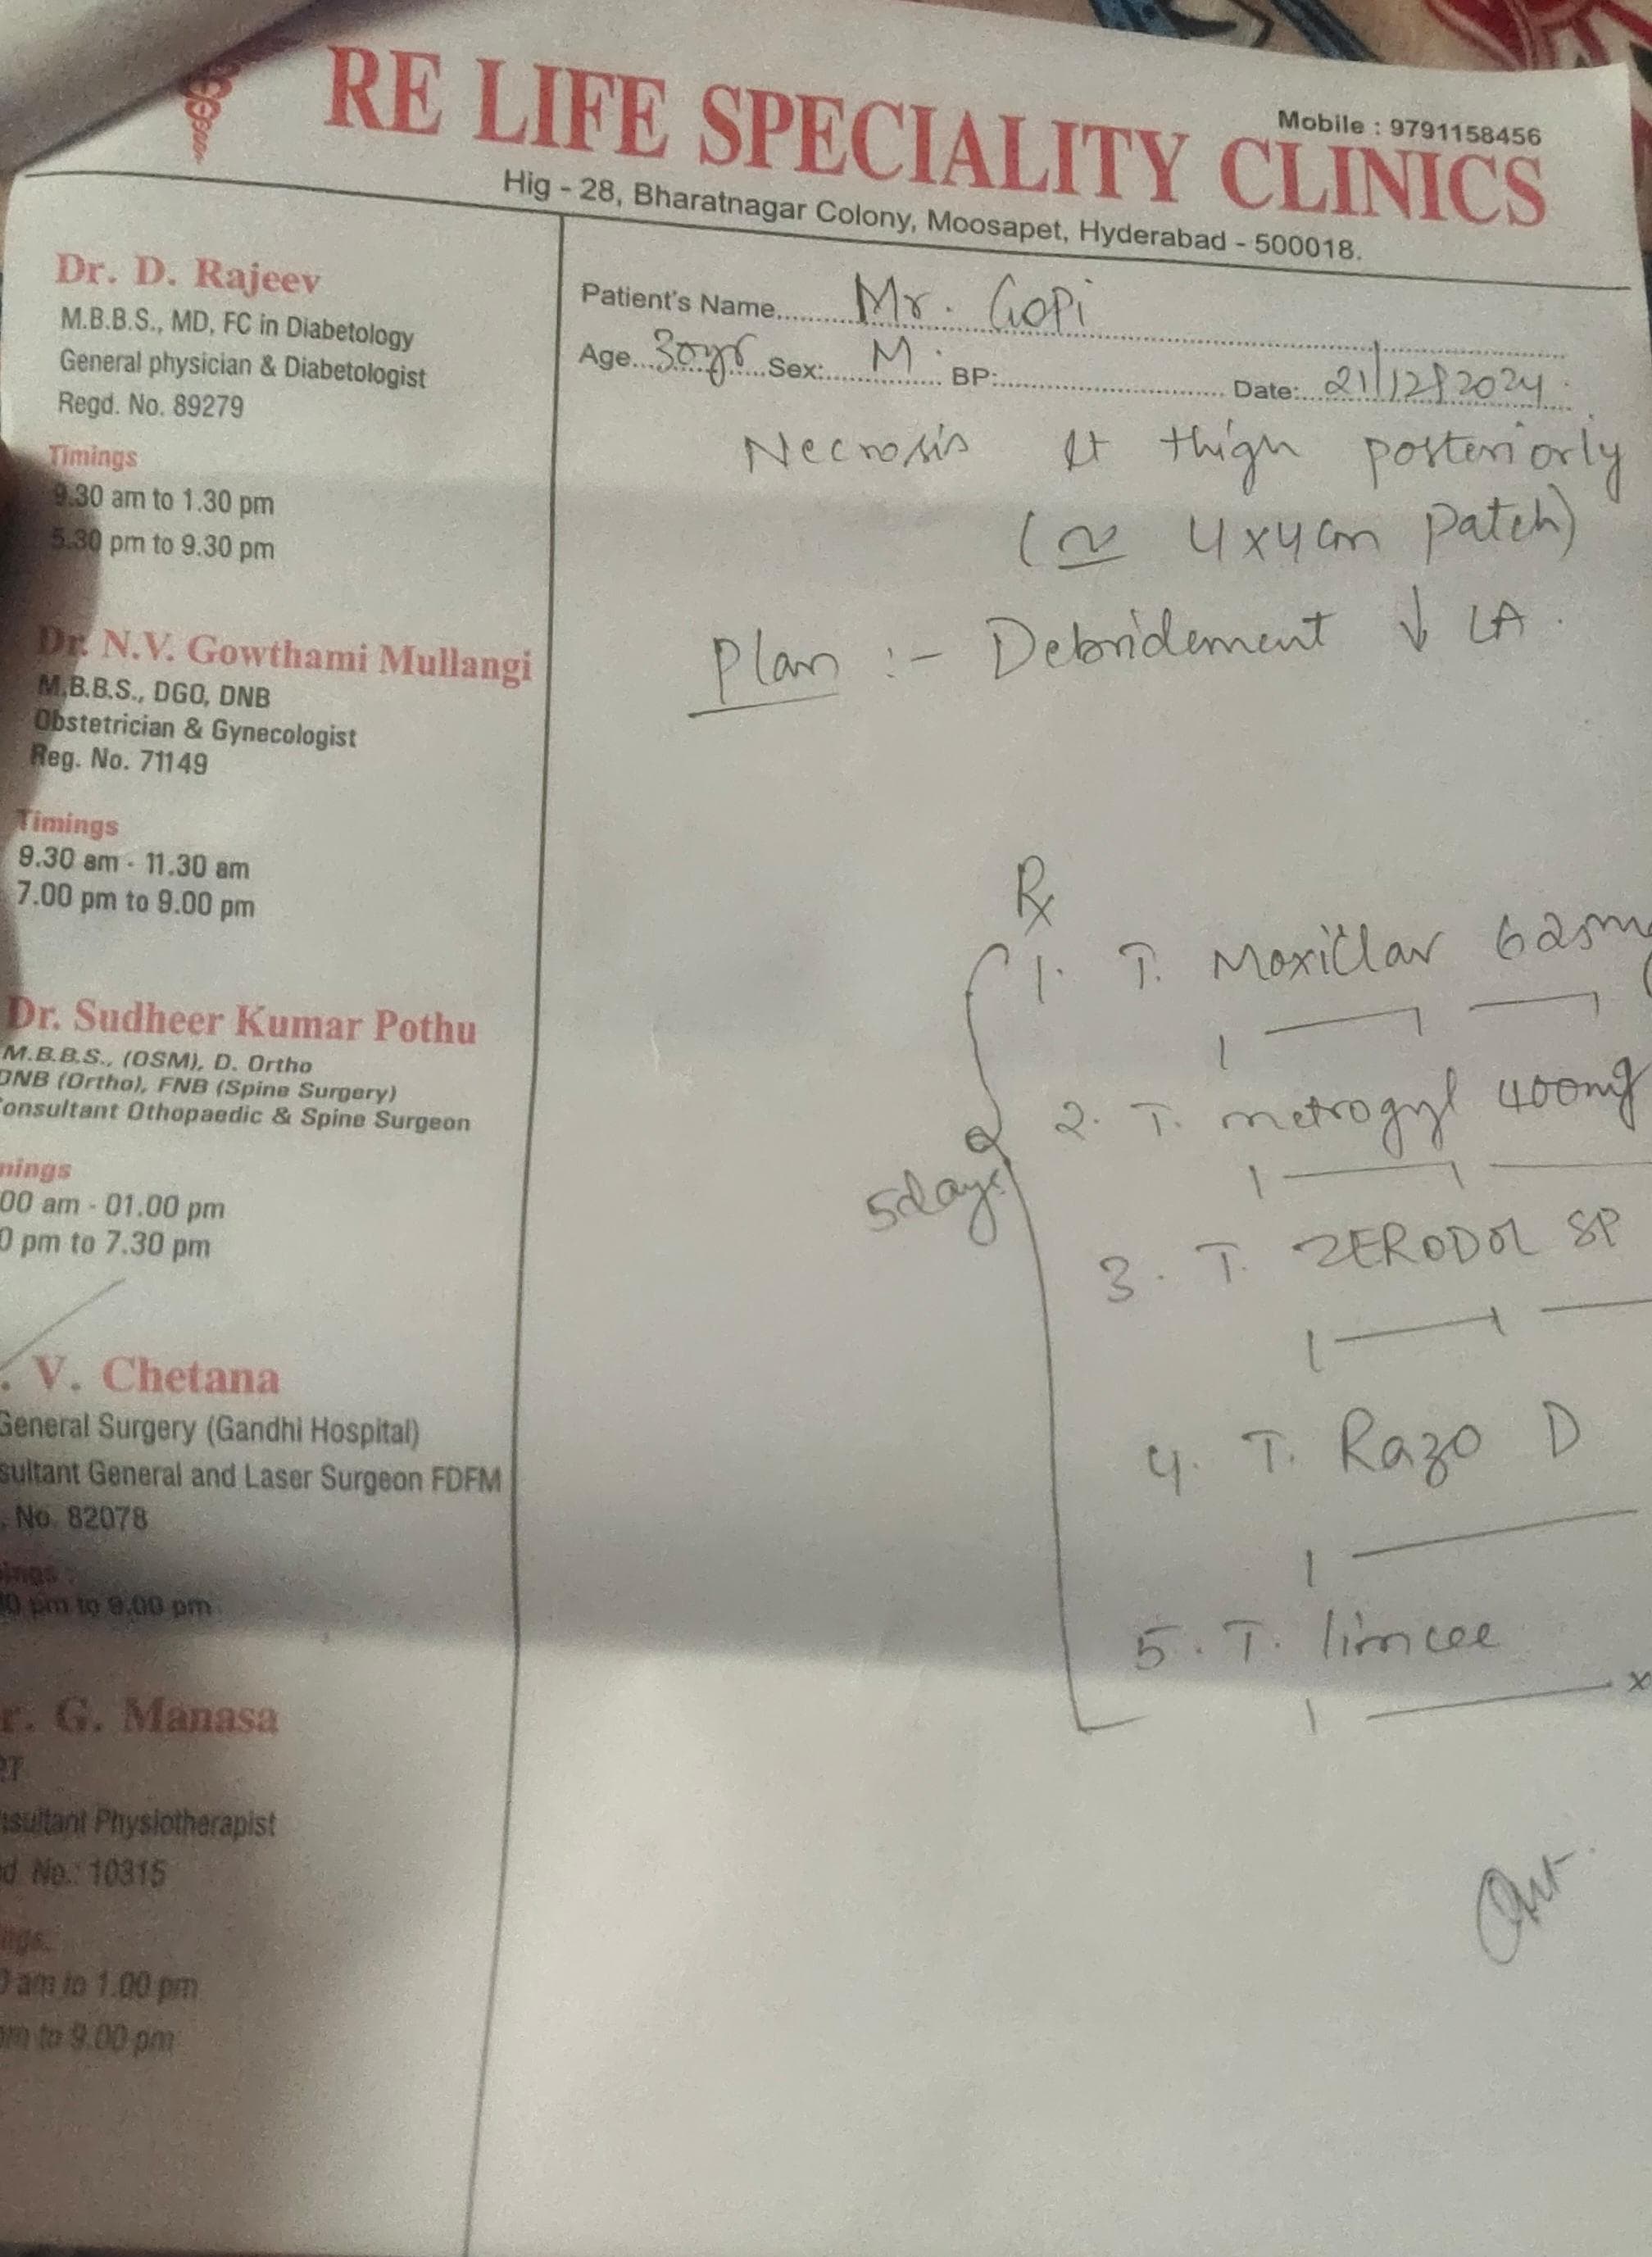 RE LIFE SPECIALITY CLINICS
Mobile : 9791158456
Hig - 28, Bharatnagar Colony, Moosapet, Hyderabad - 500018.
Dr. D. Rajeev
M.B.B.S., MD, FC in Diabetology
General physician & Diabetologist
Regd. No. 89279
Timings
9.30 am to 1.30 pm
5.30 pm to 9.30 pm
Dr. N.V. Gowthami Mullangi
M.B.B.S., DGO, DNB
Obstetrician & Gynecologist
Reg. No. 71149
Timings
9.30 am - 11.30 am
7.00 pm to 9.00 pm
Dr. Sudheer Kumar Pothu
M.B.B.S., (OSM), D. Ortho
DNB (Ortho), FNB (Spine Surgery)
Consultant Othopaedic & Spine Surgeon
nings
00 am - 01.00 pm
0 pm to 7.30 pm
. V. Chetana
General Surgery (Gandhi Hospital)
sultant General and Laser Surgeon FDFM
. No. 82078
ings :
0 pm to 9.00 pm
r. G. Manasa
PT
nsultant Physiotherapist
d. No.: 10315
ings:
0 am to 1.00 pm
pm to 9.00 pm
Patient's Name Mr. Gopi
Age 30yr Sex: M BP: Date: 21/12/2024
Necrosis Lt thigh posteriorly
(≃ 4x4cm patch)
Plan :- Debridement ↓ LA.
Rx
1. T. Moxillar 625m
2. T. metrogyl 400mg
5days
3. T. ZERODOL SP
4. T. Razo D
5. T. limcee
x